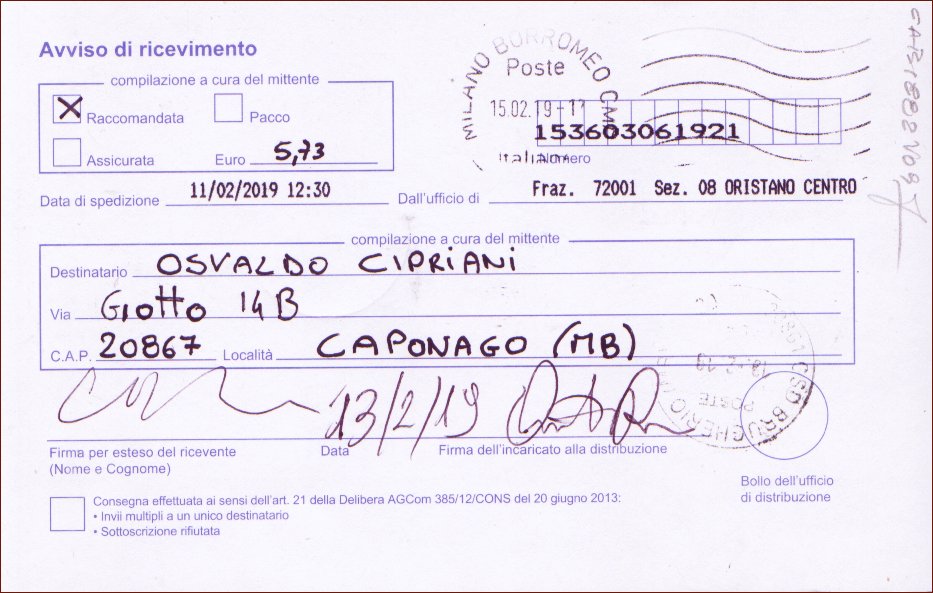 Avviso di ricevimento
compilazione a cura del mittente
X Raccomandata Pacco
Assicurata Euro 5,73
MILANO BORROMEO CMP
Poste
15.02.19-17
153603061921
italiane
Numero
Data di spedizione 11/02/2019 12:30 Dall'ufficio di Fraz. 72001 Sez. 08 ORISTANO CENTRO
compilazione a cura del mittente
Destinatario OSVALDO CIPRIANI
Via GIOTTO 14 B
C.A.P. 20867 Località CAPONAGO (MB)
13/2/19
Firma per esteso del ricevente
(Nome e Cognome)
Data
Firma dell'incaricato alla distribuzione
CSD BRUGHERIO
POSTE
Bollo dell'ufficio
di distribuzione
Consegna effettuata ai sensi dell'art. 21 della Delibera AGCom 385/12/CONS del 20 giugno 2013:
• Invii multipli a un unico destinatario
• Sottoscrizione rifiutata